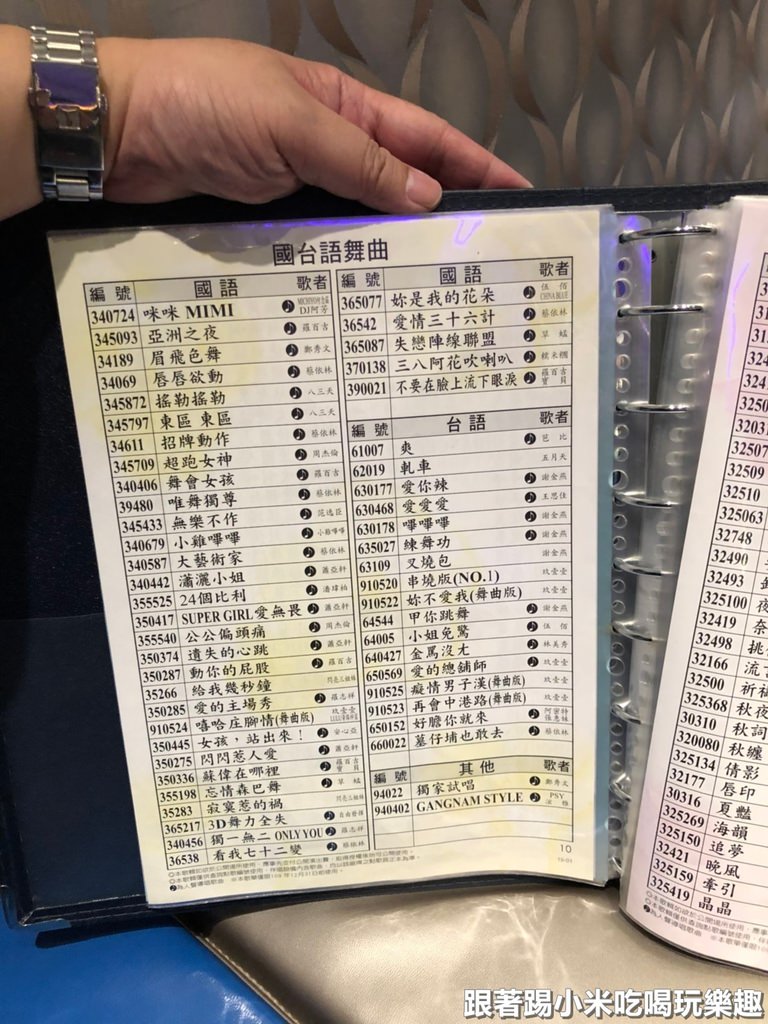 國台語舞曲
編號 國語 歌者
340724 咪咪 MIMI DJ阿芳
345093 亞洲之夜 羅百吉
34189 眉飛色舞 鄭秀文
34069 唇唇欲動 蔡依林
345872 搖勒搖勒 八三夭
345797 東區 東區 八三夭
34611 招牌動作 蔡依林
345709 超跑女神 周杰倫
340406 舞會女孩 羅百吉
39480 唯舞獨尊 蔡依林
345433 無樂不作 范逸臣
340679 小雞嗶嗶 小雞嗶嗶
340587 大藝術家 蔡依林
340442 瀟灑小姐 蕭亞軒
355525 24個比利 潘瑋柏
350417 SUPER GIRL愛無畏 蕭亞軒
355540 公公偏頭痛 周杰倫
350374 遺失的心跳 蕭亞軒
350287 動你的屁股 羅百吉
35266 給我幾秒鐘 閃亮三姐妹
350285 愛的主場秀 羅志祥
910524 嘻哈庄腳情(舞曲版) 玖壹壹
350445 女孩，站出來！ 安心亞
350275 閃閃惹人愛 蕭亞軒
350336 蘇偉在哪裡 羅百吉 寶貝
355198 忘情森巴舞 草蜢
35283 寂寞惹的禍 閃亮三姐妹
365217 3D舞力全失 自由發揮
340456 獨一無二 ONLY YOU 羅志祥
36538 看我七十二變 蔡依林
編號 國語 歌者
365077 妳是我的花朵 伍佰 CHINA BLUE
36542 愛情三十六計 蔡依林
365087 失戀陣線聯盟 草蜢
370138 三八阿花吹喇叭 糯米糰
390021 不要在臉上流下眼淚 羅百吉 寶貝
編號 台語 歌者
61007 爽 芭比
62019 軋車 五月天
630177 愛你辣 謝金燕
630468 愛愛愛 王思佳
630178 嗶嗶嗶 謝金燕
635027 練舞功 謝金燕
63109 叉燒包
910520 串燒版(NO.1) 玖壹壹
910522 妳不愛我(舞曲版) 玖壹壹
64544 甲你跳舞 謝金燕
64005 小姐免驚 伍佰
640427 金罵沒ㄤ 林美秀
650569 愛的總舖師 玖壹壹
910525 癡情男子漢(舞曲版) 玖壹壹
910523 再會中港路(舞曲版) 玖壹壹
650152 好膽你就來 阿密特 張惠妹
660022 墓仔埔也敢去 蔡依林
編號 其他 歌者
94022 獨家試唱 鄭秀文
940402 GANGNAM STYLE PSY
10
♪為人聲導唱歌曲
325063
32748
32490
32493
325100
32419
32498
32166
32500 祈
325368 秋夜
30310 秋詞
320080 秋纏
325134 倩影
32177 唇印
30316 夏豔
325269 海韻
325150 追夢
32421 晚風
325159 牽引
325419 晶晶
♪為人聲導唱歌曲
跟著踢小米吃喝玩樂趣